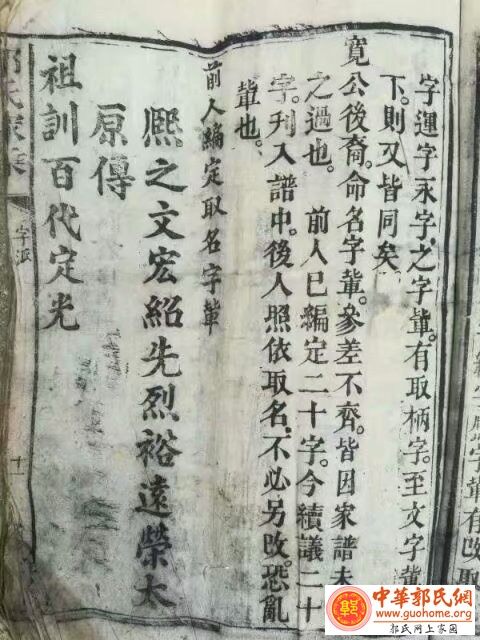 字運字永字之字輩。有取柄字。至文字輩
下。則又皆同矣
寬公後裔。命名字輩。參差不齊。皆因家譜未
之過也。　前人已編定二十字。今續議二十
字。刋入譜中。後人照依取名。不必另改。恐亂
輩也。
前人編定取名字輩
熈之文宏紹先烈裕遠榮大
原傳
祖訓百代定光
氏家乘
字派
十
字輩有改取
中華郭氏網
www.guohome.org
郭氏网上家園